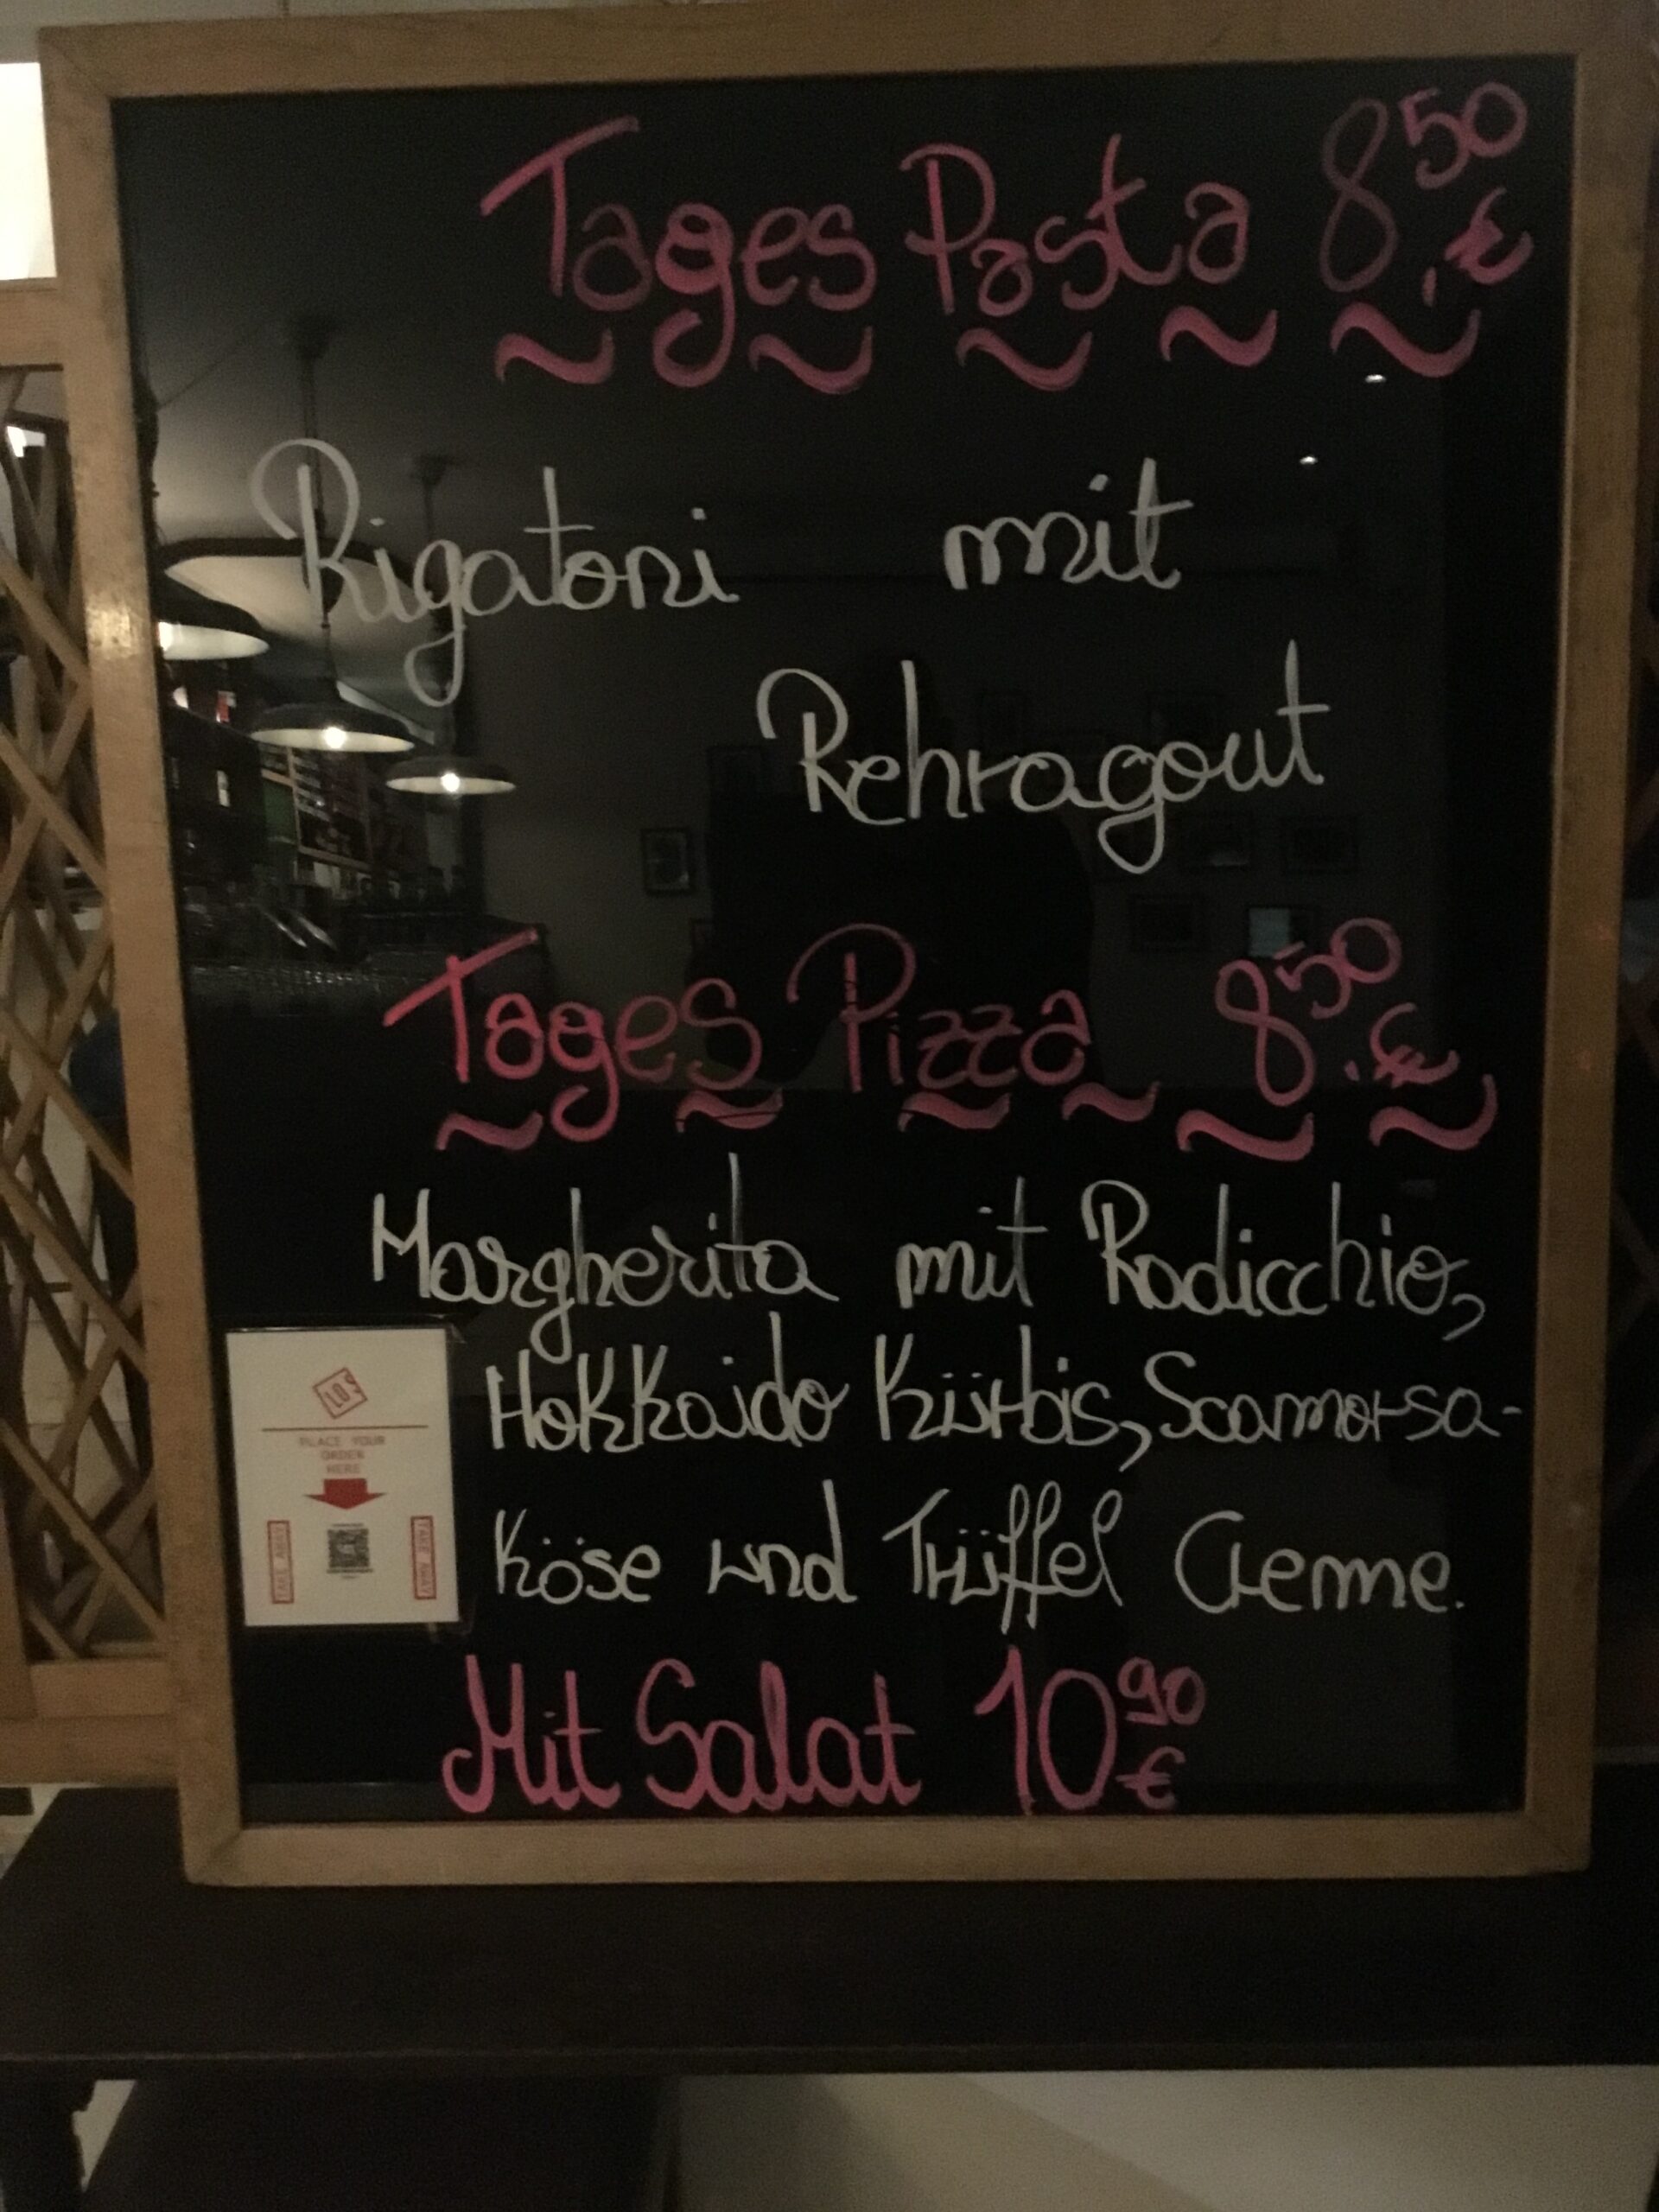 Tages Pasta 8,50 €
Rigatoni mit
Rehragout
Tages Pizza 8.50 €
Margherita mit Radicchio,
Hokkaido Kürbis, Scamorsa-
Käse und Trüffel Creme.
Mit Salat 10 90 €
PLACE YOUR
ORDER
HERE
TAKE AWAY